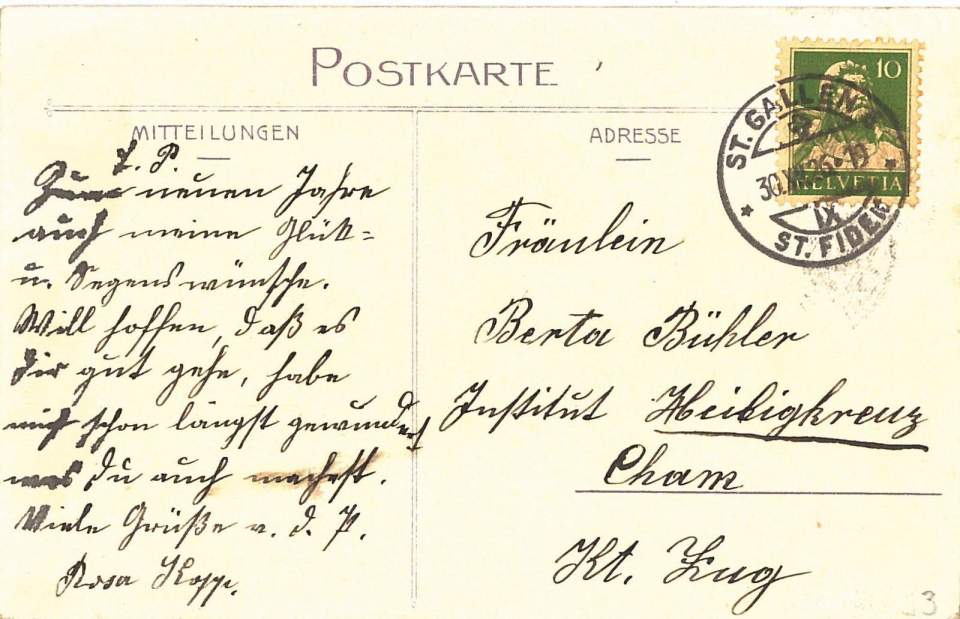 POSTKARTE
MITTEILUNGEN
L. P.
Zum neuen Jahre
auch meine Glük-
u. Segenswünsche.
Will hoffen, daß es
Dir gut gehe, habe
mich schon längst gewundert
was Du auch machest.
Viele Grüße v. d. P.
Rosa Kopp.
ADRESSE
10
HELVETIA
ST. GALLEN
ST. FIDEN
IX
Fräulein
Berta Bühler
Institut Heiligkreuz
Cham
Kt. Zug